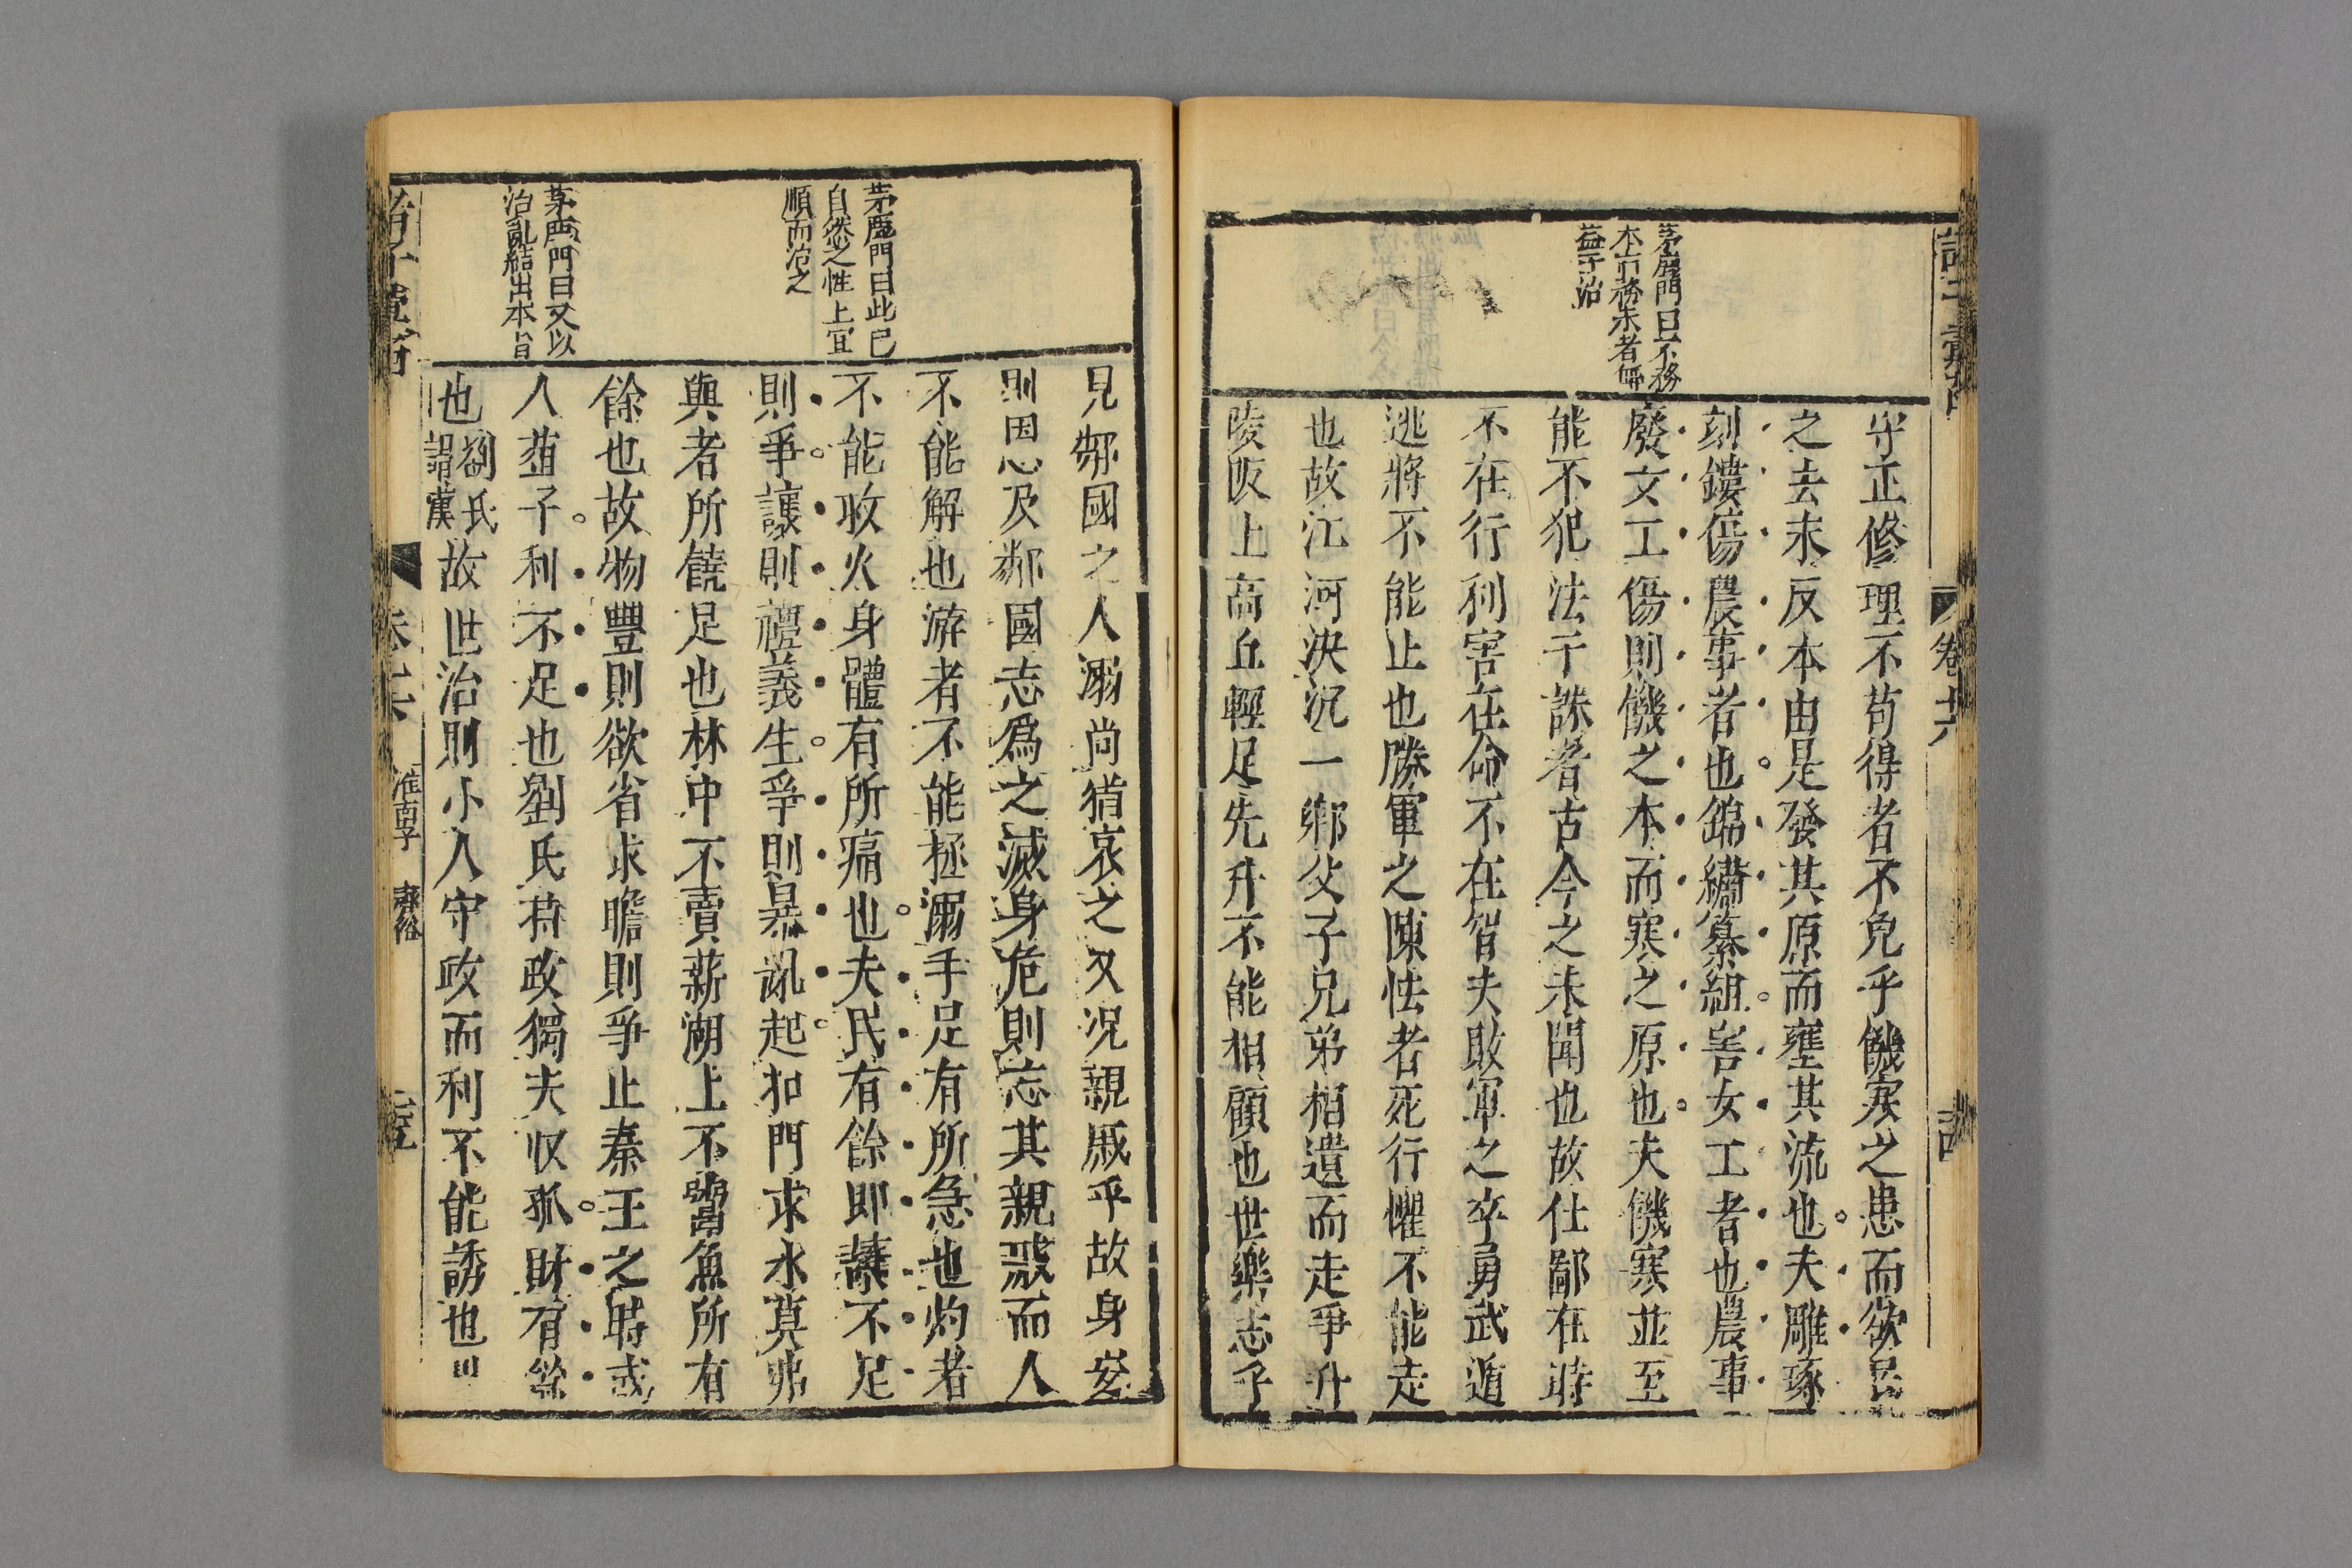 茅鹿門曰不務
本而務末者何
益于治
守正修理不苟得者不免乎饑寒之患而欲民
之去末反本由是發其原而壅其流也夫雕琢
刻鏤傷農事者也錦繡纂組害女工者也農事
廢女工傷則饑之本而寒之原也夫饑寒並至
能不犯法干誅者古今之未聞也故仕鄙在時
不在行利害在命不在智夫敗軍之卒勇武遁
逃將不能止也勝軍之陳怯者死行懼不能走
也故江河決沉一鄉父子兄弟相遺而走爭升
陵阪上高丘輕足先升不能相顧也世樂志乎
茅鹿門曰此巳
自然之性上宜
順而治之
茅鹿門曰又以
治亂結出本旨
見鄰國之人溺尚猶哀之又况親戚乎故身安
則恩及鄰國志爲之滅身危則忘其親戚而人
不能解也游者不能拯溺手足有所急也灼者
不能收火身體有所痛也夫民有餘即讓不足
則爭讓則禮義生爭則暴亂起扣門求水莫弗
與者所饒足也林中不賣薪湖上不鬻魚所有
餘也故物豐則欲省求贍則爭止秦王之時或
人葅子利不足也劉氏持政獨夫收孤財有餘
也劉氏謂漢故世治則小人守政而利不能誘也
卷六
淮南子
齊俗